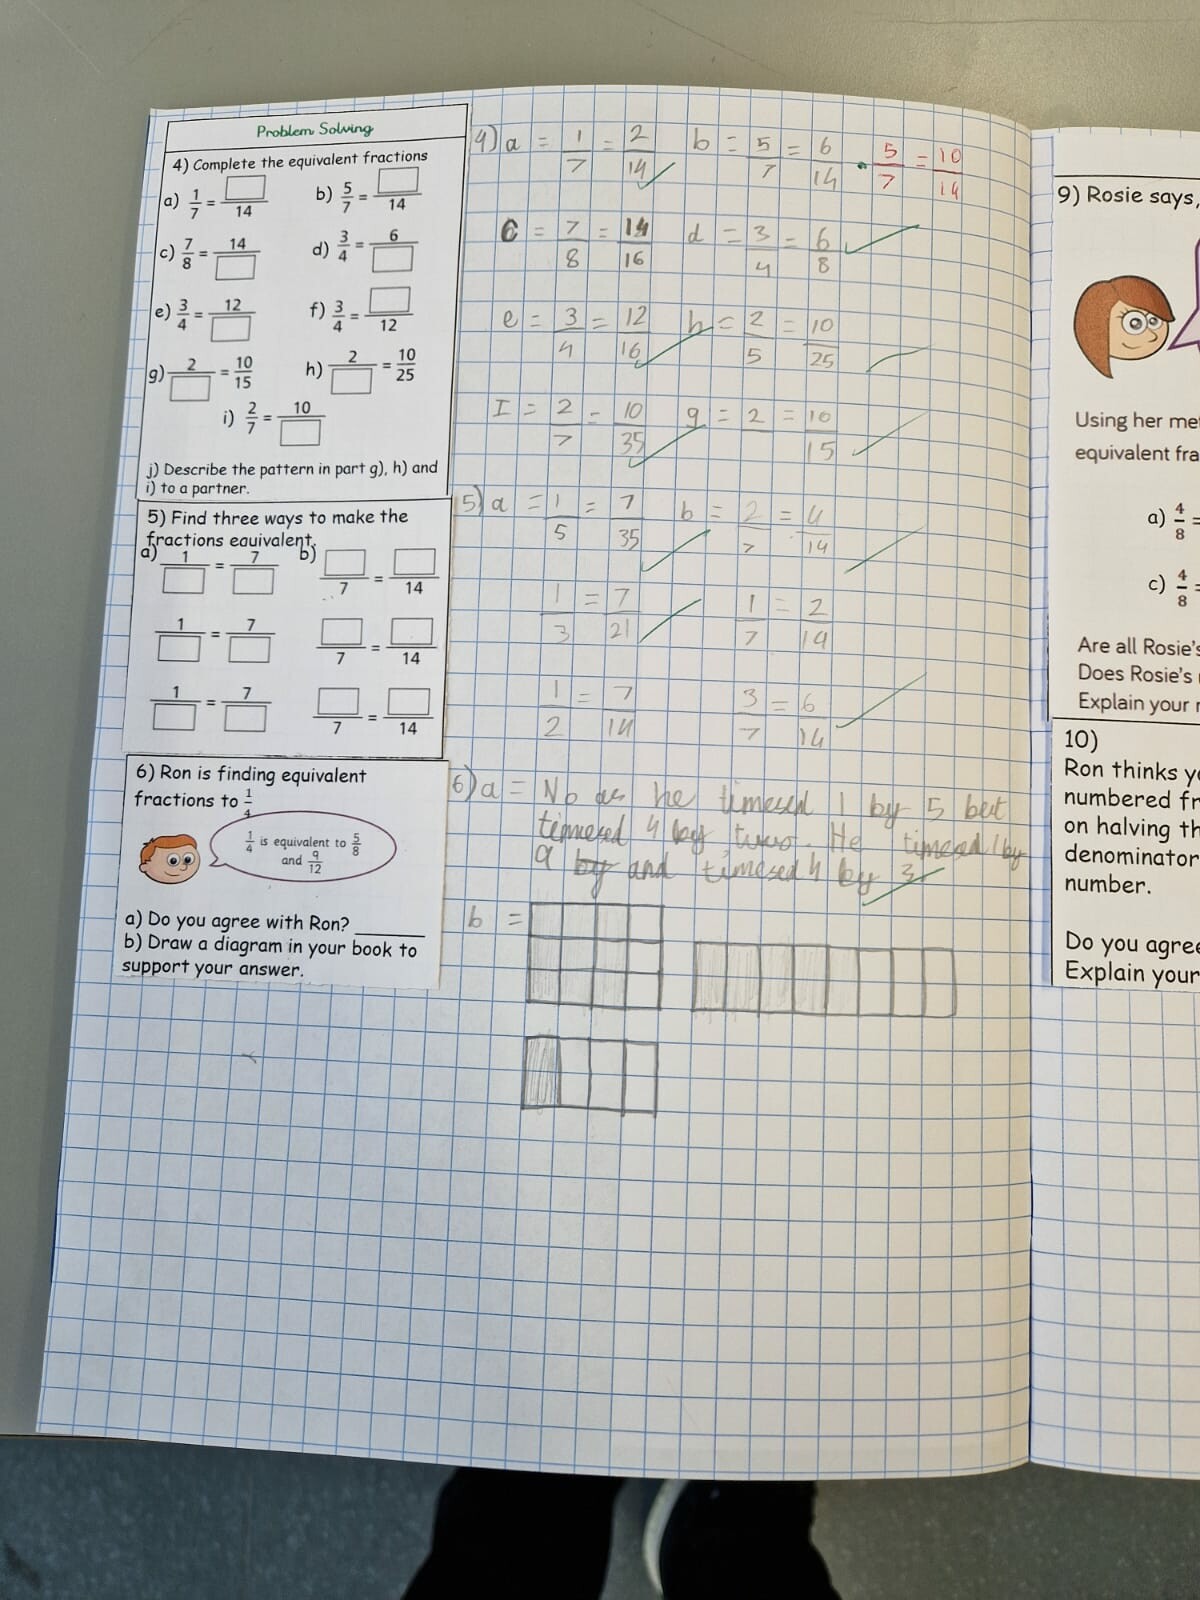 Problem Solving
4) Complete the equivalent fractions
a) 1/7 = □/14 b) 5/7 = □/14
c) 7/8 = 14/□ d) 3/4 = 6/□
e) 3/4 = 12/□ f) 3/4 = □/12
g) 2/□ = 10/15 h) 2/□ = 10/25
i) 2/7 = 10/□
j) Describe the pattern in part g), h) and
i) to a partner.
5) Find three ways to make the
fractions equivalent.
a) 1/□ = 7/□ b) □/7 = □/14
1/□ = 7/□ □/7 = □/14
1/□ = 7/□ □/7 = □/14
6) Ron is finding equivalent
fractions to 1/4
1/4 is equivalent to 5/8
and 9/12
a) Do you agree with Ron? ______
b) Draw a diagram in your book to
support your answer.
4) a = 1/7 = 2/14 b = 5/7 = 6/14 . 5/7 = 10/14
C = 7/8 = 14/16 d = 3/4 = 6/8
e = 3/4 = 12/16 h = 2/5 = 10/25
I = 2/7 = 10/35 g = 2/ = 10/15
5) a = 1/5 = 7/35 b = 2/7 = 4/14
1/3 = 7/21 1/7 = 2/14
1/2 = 7/14 3/7 = 6/14
6) a = No as he timesed 1 by 5 but
timesed 4 by two. He timesed 1 by
9 by and timesed 4 by 3.
b =
9) Rosie says,
Using her me
equivalent fra
a) 4/8 =
c) 4/8 =
Are all Rosie's
Does Rosie's
Explain your r
10)
Ron thinks yo
numbered fr
on halving th
denominator
number.
Do you agree
Explain your